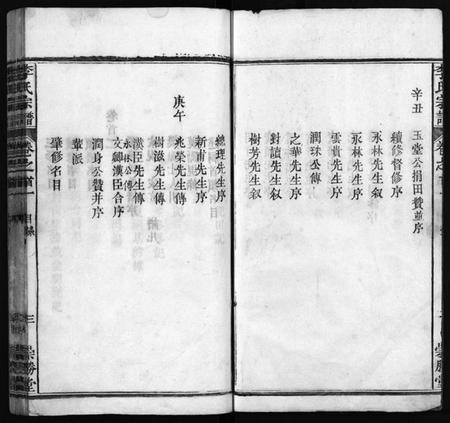 李氏宗譜
卷之首
崇勝堂
辛丑
玉堂公捐田贊並序
續修督修序
永林先生叙
永林先生序
雲貴先生序
潤珠公傳
之華先生序
對讀先生叙
樹芳先生叙
庚午
總理先生序
新甫先生序
兆榮先生傳
樹滋先生傳
漢臣先生傳
永林公傳
文卿漢臣合序
潤身公贊并序
輩派
肇修名目
李氏宗譜
卷之首
目錄
三
崇勝堂